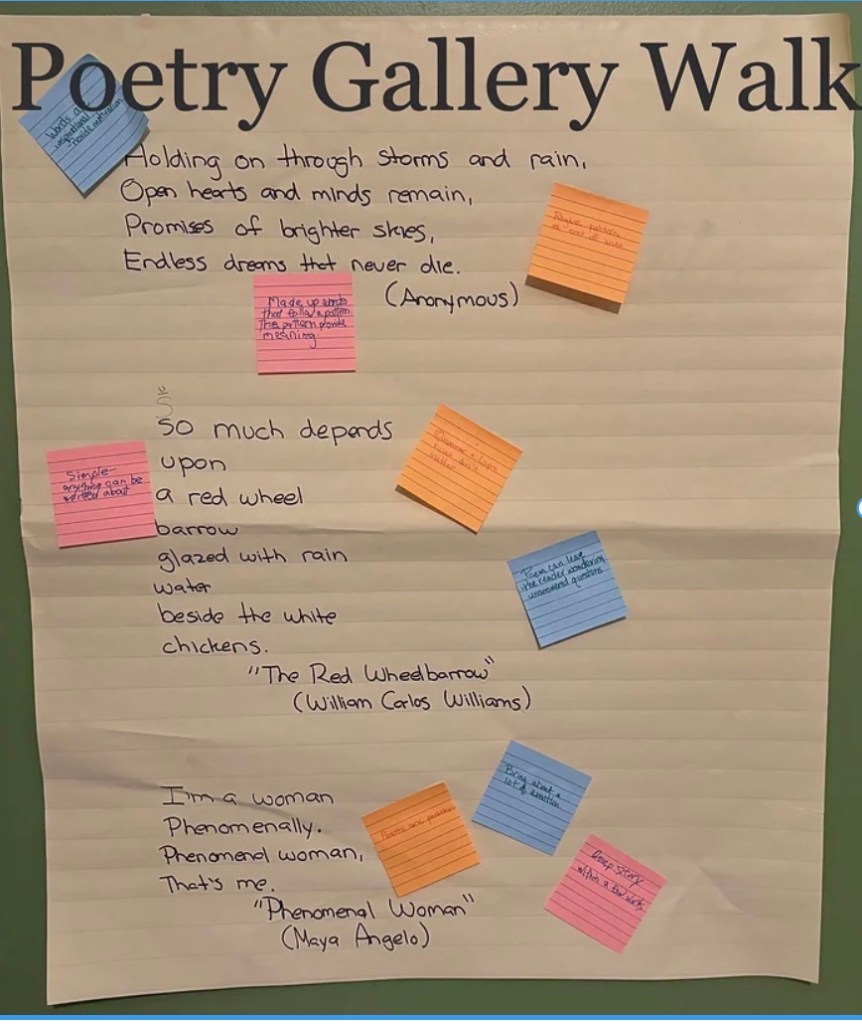 Poetry Gallery Walk
Words
Holding on through storms and rain,
Open hearts and minds remain,
Promises of brighter skies,
Endless dreams that never die.
(Anonymous)
Made up words
that follow a pattern
The pattern provide
meaning.
So much depends
upon
a red wheel
barrow
glazed with rain
water
beside the white
chickens.
"The Red Wheelbarrow"
(William Carlos Williams)
Simple-
anything can be
written about
Poem can
the reader wondering
unanswered questions
I'm a woman
Phenomenally.
Phenomenal woman,
That's me.
"Phenomenal Woman"
(Maya Angelo)
Poems are
Bring about a
lot of emotion
Deep story
within a few words